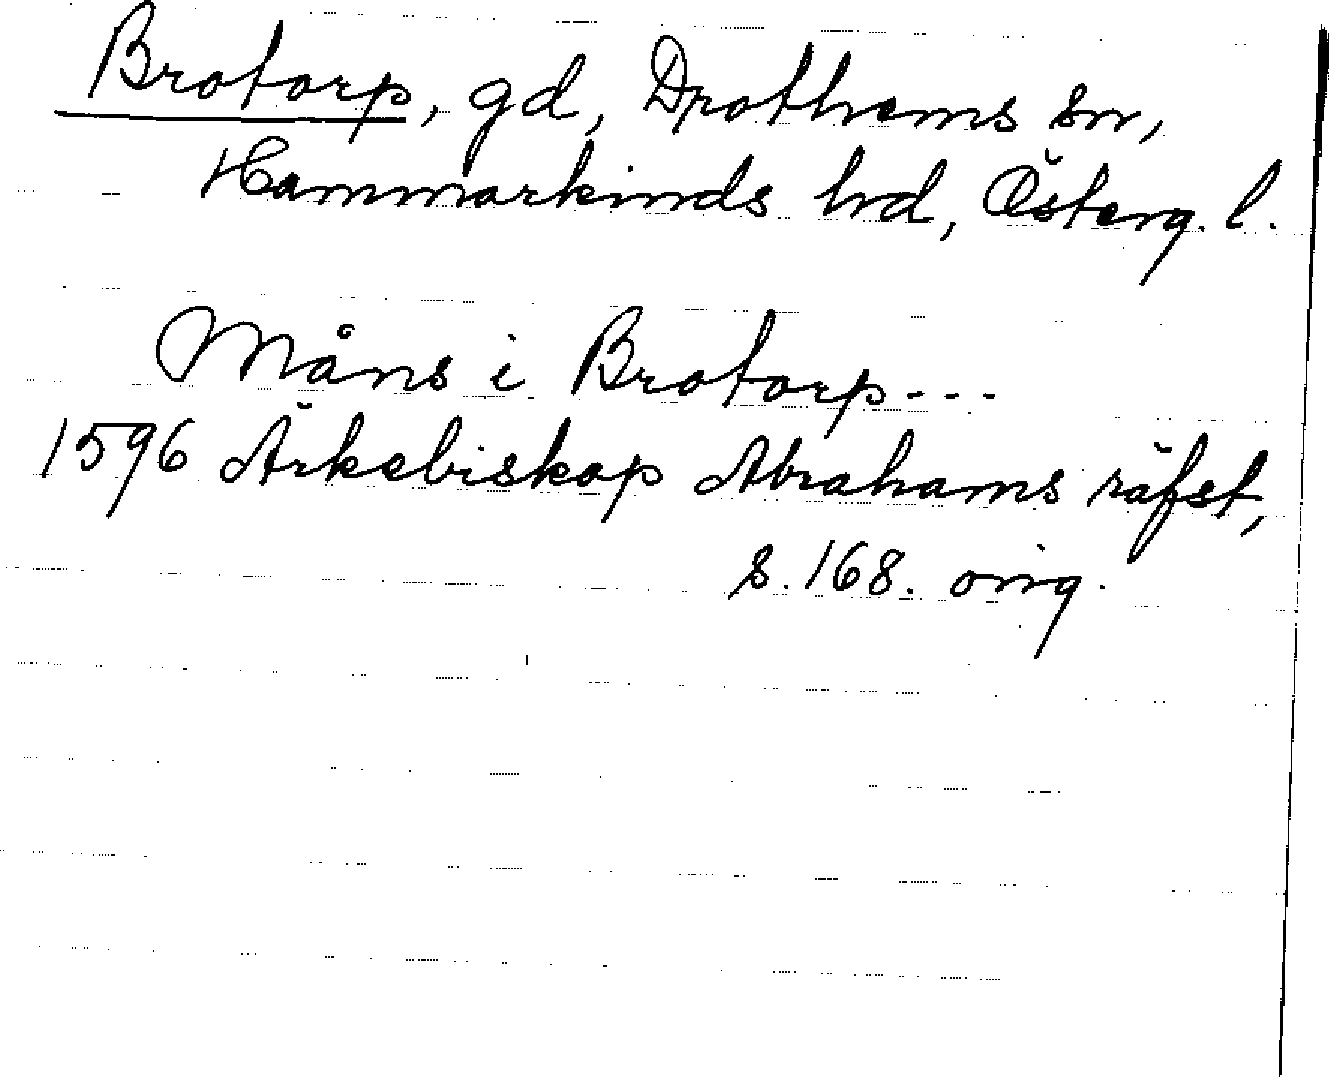 Brotorp, gd, Drothems sn,
Hammarkinds hrd, Österg. l.
Måns i Brotorp---
1596 Ärkebiskop Abrahams räfst,
s. 168. orig.